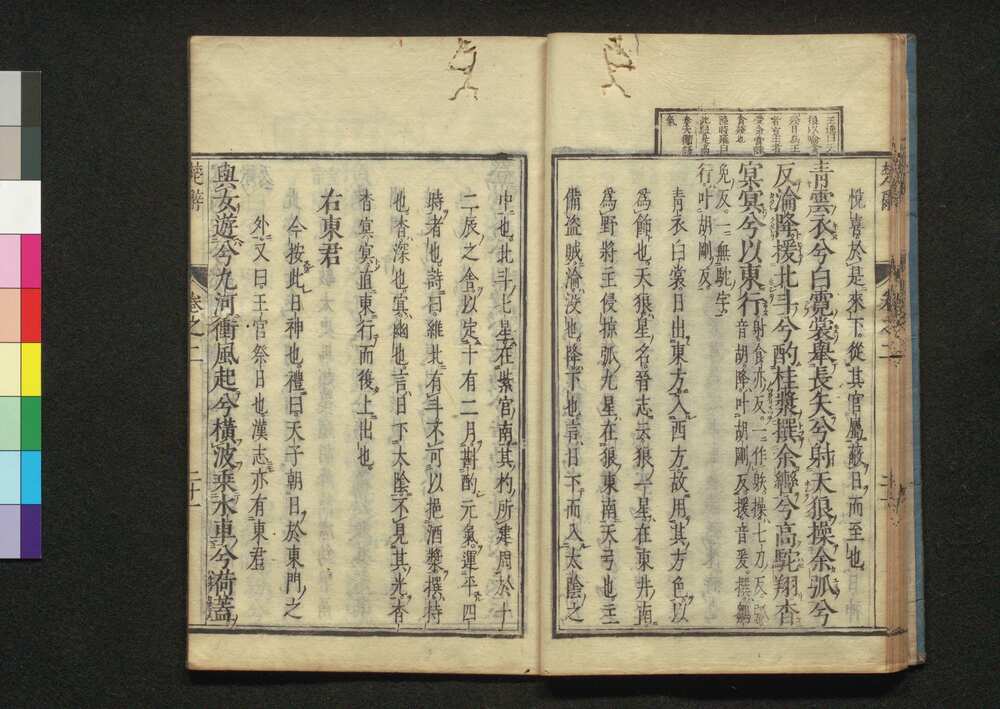 悅喜於是來下從其官屬蔽日而至也
青雲衣兮白霓裳舉長矢兮射天狼操余弧兮
反淪降援北斗兮酌桂漿撰余轡兮高駝翔杳
冥冥兮以東行射食亦反一作躲操七刀反弧
音胡降叶胡剛反援音爰撰雛
免反一無駝字
行叶胡剛反
青衣白裳日出東方入西方故用其方色以
爲飾也天狼星名晉志云狼一星在東井南
爲野將主侵掠弧九星在狼東南天弓也主
備盜賊淪沒也降下也言日下而入太陰之
楚辭
卷之二
中也北斗七星在紫宮南其杓所建周於十
二辰之舍以定十有二月斟酌元氣運平四
時者也詩曰維北有斗不可以挹酒漿撰持
也杳深也冥幽也言日下太陰不見其光杳
杳冥冥直東行而後上出也
右東君
今按此日神也禮曰天子朝日於東門之
外又曰王宮祭日也漢志亦有東君
與女遊兮九河衝風起兮橫波乘水車兮荷蓋
楚辭
卷之二